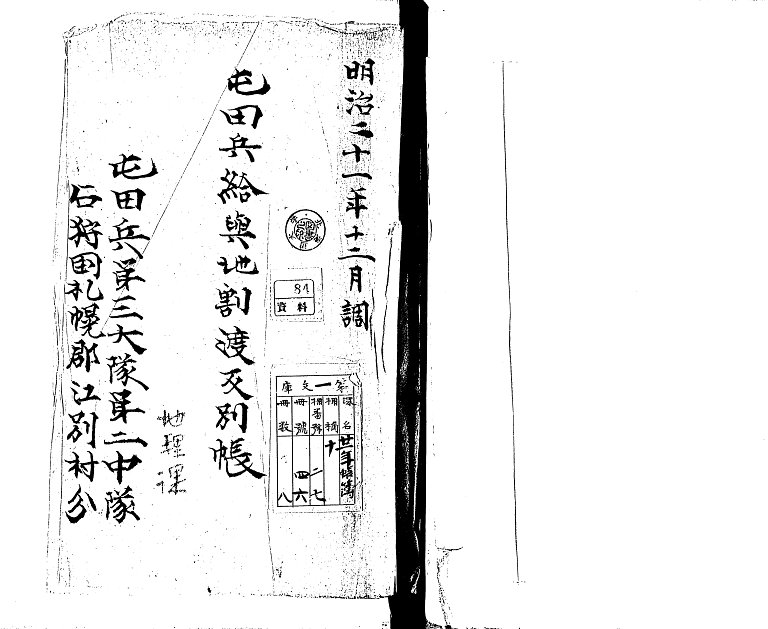 明治二十一年十二月調
屯田兵給與地割渡反別帳
屯田兵第三大隊第二中隊
石狩国札幌郡江別村分
地理課
81
資料
第一文庫
棚番號 二七
冊號 四六
冊数 八